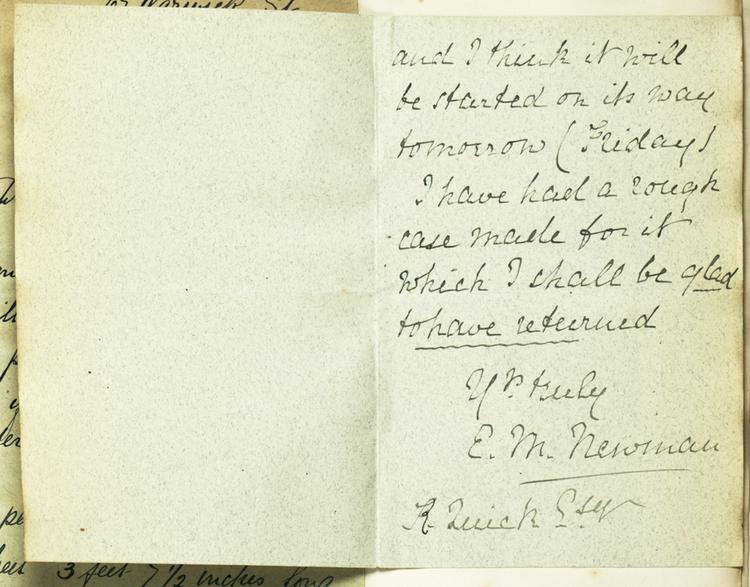 67 Warwick St
and I think it will
be started on its way
tomorrow (Friday)
I have had a rough
case made for it
which I shall be glad
to have returned
Yrs truly
E. M. Newman
R. Quick Esqr
3 feet 7 1/2 inches long